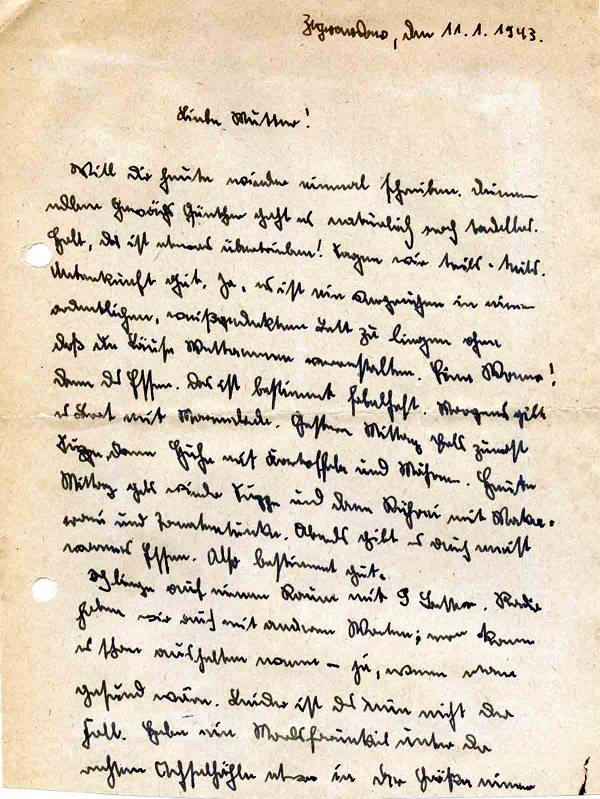 den 11.1.1943.
Liebe Mutter!
Will dir heute wieder einmal schreiben. Deinem
edlen Gewächs Günther geht es natürlich noch tadellos.
Halt, das ist etwas übertrieben! Sagen wir teils-teils.
Unterkunft gut. Ja, es ist ein Vergnügen in einem
ordentlichen, weißgedeckten Bett zu liegen ohne
daß die Läuse Wettrennen veranstalten. Eine Wonne!
Dann das Essen. Das ist bestimmt fabelhaft. Morgens gibt
es Brot mit Marmelade. Gestern Mittag gabs zuerst
Suppe, dann Huhn mit Kartoffeln und Möhren. Heute
Mittag gabs wieder Suppe und dann Rührei mit Maka-
roni und Tomatentunke. Abends gibt es auch meist
warmes Essen. Also bestimmt gut.
Ich liege auf einem Raum mit 9 Betten. Radio
haben wir auch mit anderen Worten; man kann
es schon aushalten wenn man
gesund wäre. Leider ist das nun nicht der
Fall. Habe ein Mordsfurunkel unter der
rechten Achselhöhle etwa in der Größe einer